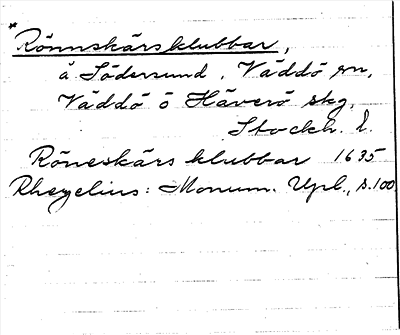 *
Rönnskärsklubbar,
å Södersund, Väddö sn,
Väddö o Häverö skg,
Stockh. l.
Röneskärs klubbar 1635
Rhezelius: Monum. Upl., s.100.